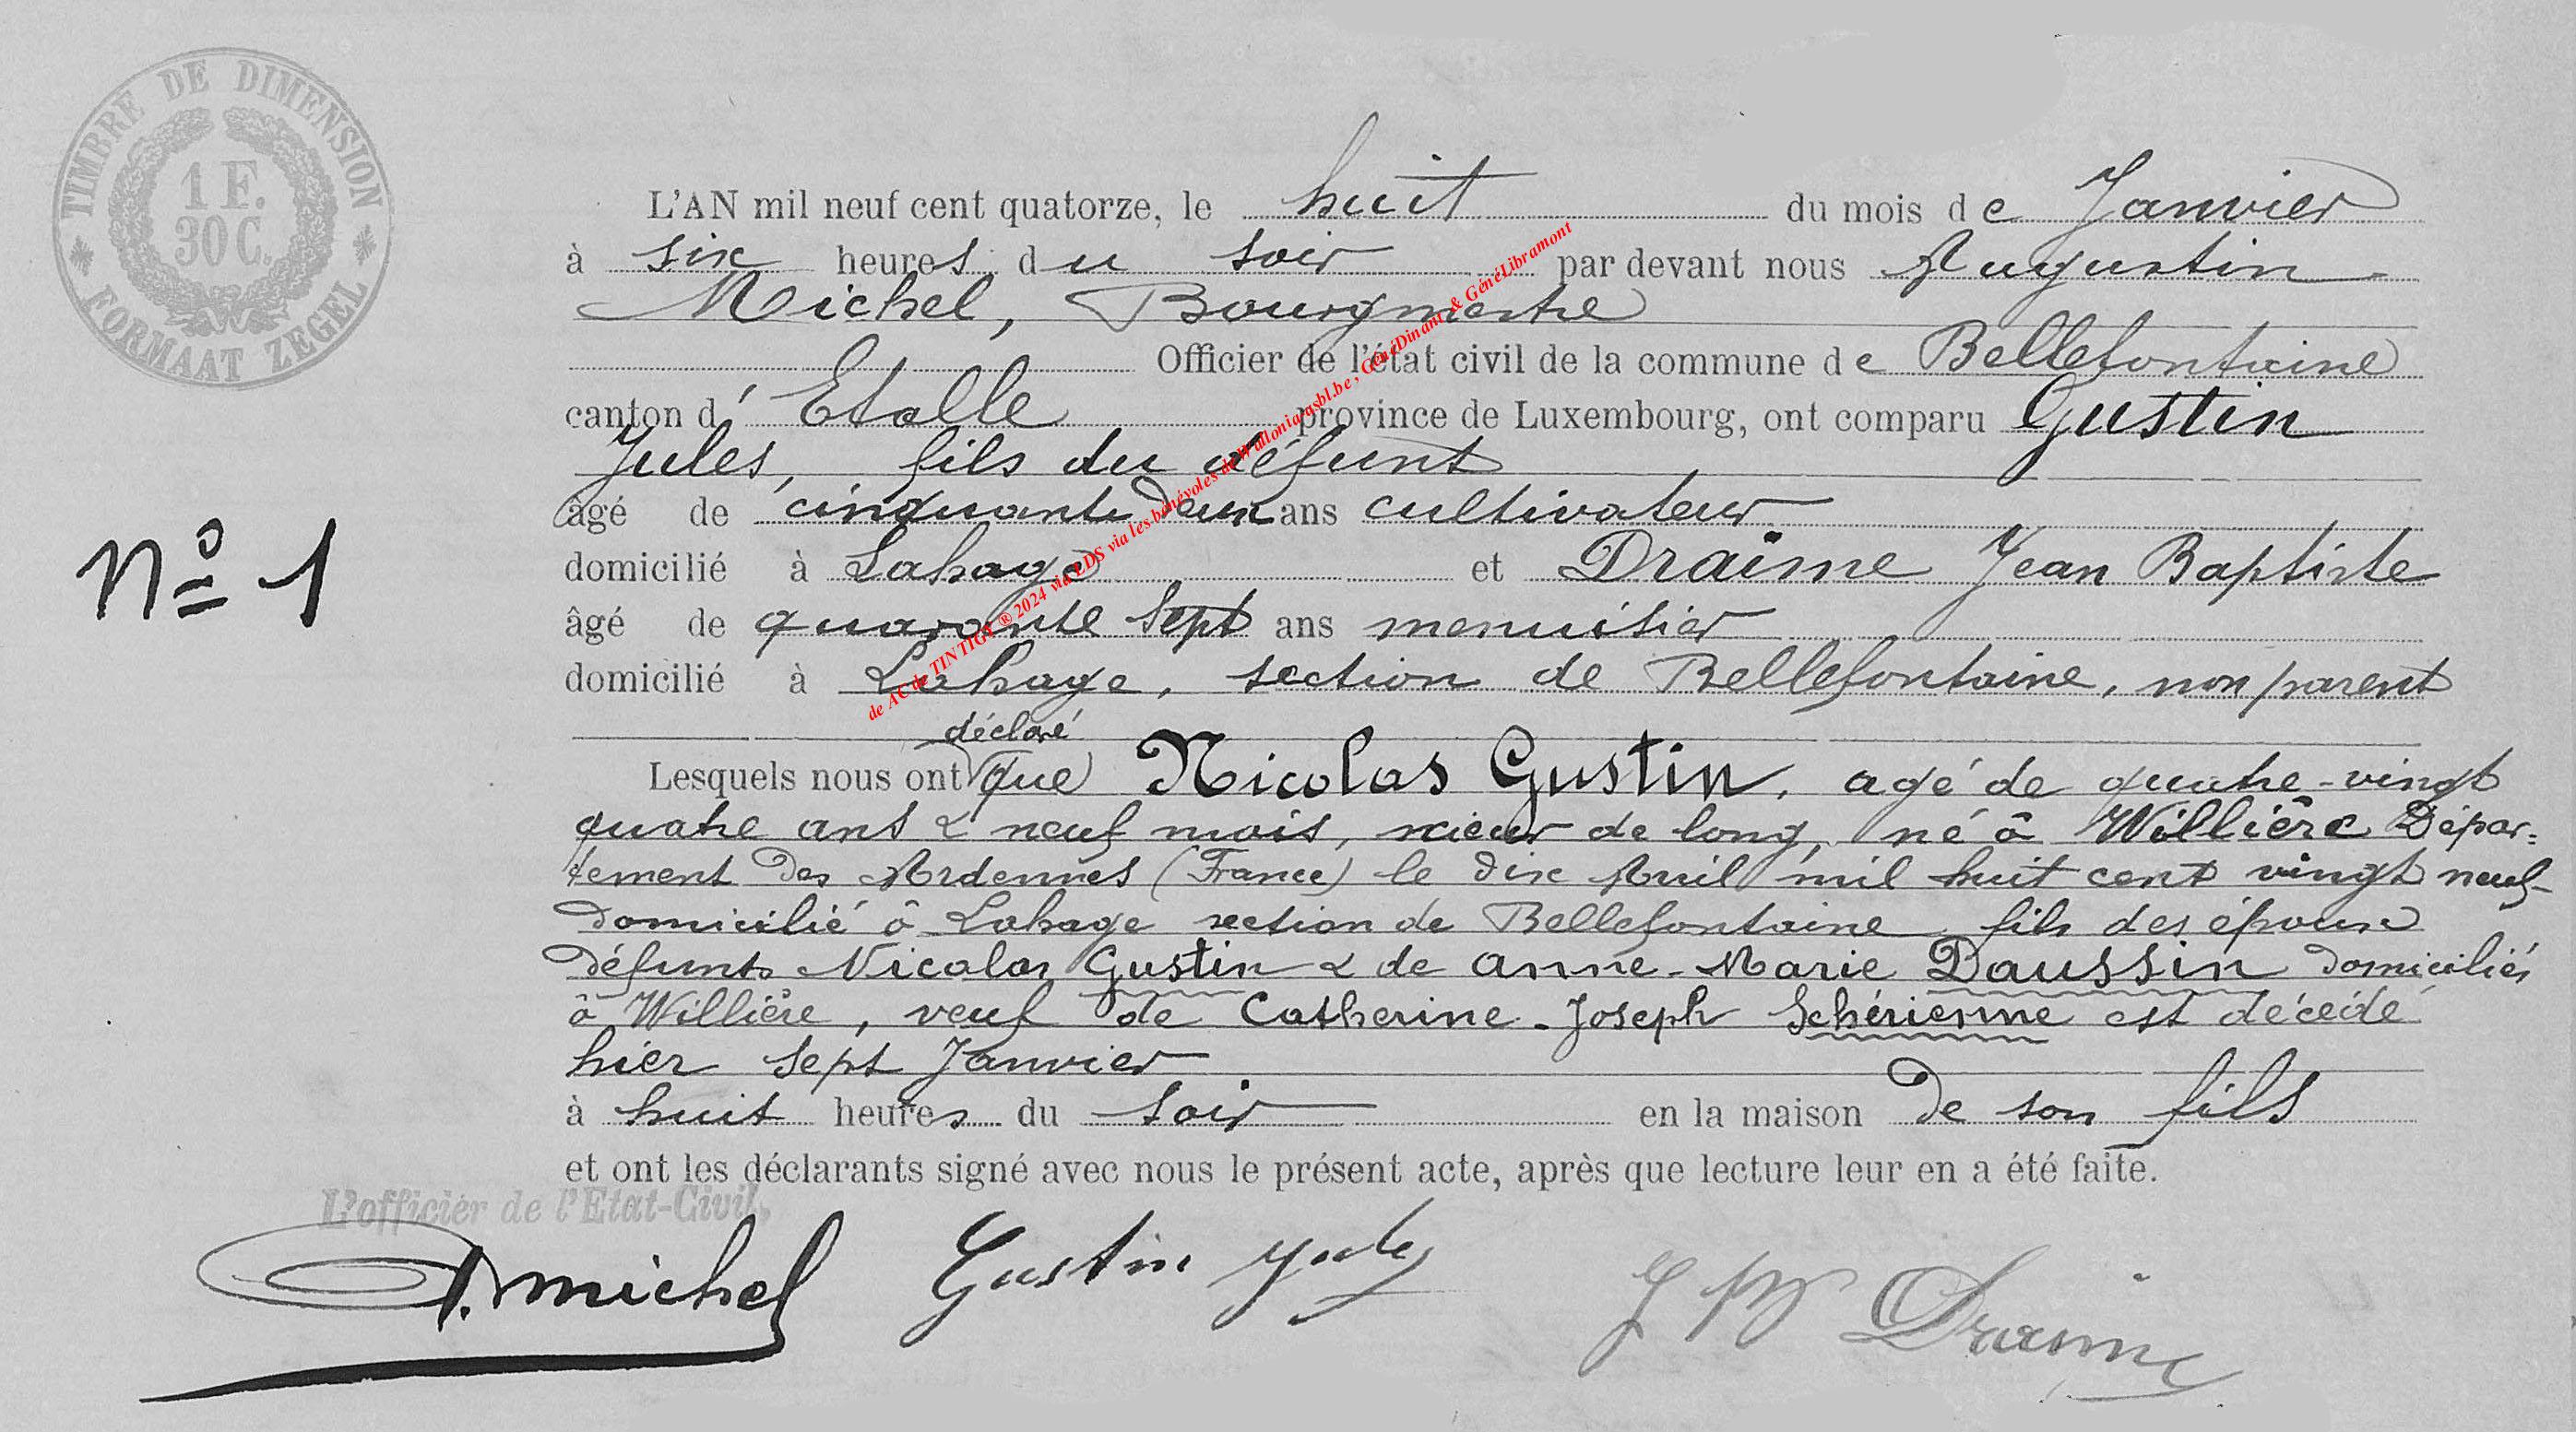 TIMBRE DE DIMENSION
1 F.
30 C.
FORMAAT ZEGEL
L'AN mil neuf cent quatorze, le huit du mois de Janvier
à six heures du soir par devant nous Augustin
Michel, Bourgmestre
Officier de l'état civil de la commune de Bellefontaine
canton d'Etalle province de Luxembourg, ont comparu Gustin
Jules, fils du défunt
âgé de cinquante deux ans cultivateur
domicilié à Lahage et Draime Jean Baptiste
N° 1
âgé de quarante sept ans menuisier
domicilié à Lahage, section de Bellefontaine, non parent
déclaré
Lesquels nous ont que Nicolas Gustin, agé de quatre-vingt
quatre ans & neuf mois, scieur de long, né à Willière Dépar=
tement des Ardennes (France) le dix Avril mil huit cent vingt neuf
domicilié à Lahage section de Bellefontaine fils des époux
défunts Nicolas Gustin & de Anne-Marie Daussin domiciliés
à Willière, veuf de Catherine-Joseph Schérienne est décédé
hier sept Janvier
à huit heures du soir en la maison de son fils
et ont les déclarants signé avec nous le présent acte, après que lecture leur en a été faite.
L'officier de l'Etat-Civil,
A. Michel Gustin Jules J B Draime
de AC de TINTIGY ® 2024 via LDS via les bénévoles de Walloniaasbl.be, GénéDinant & GénéLibramont